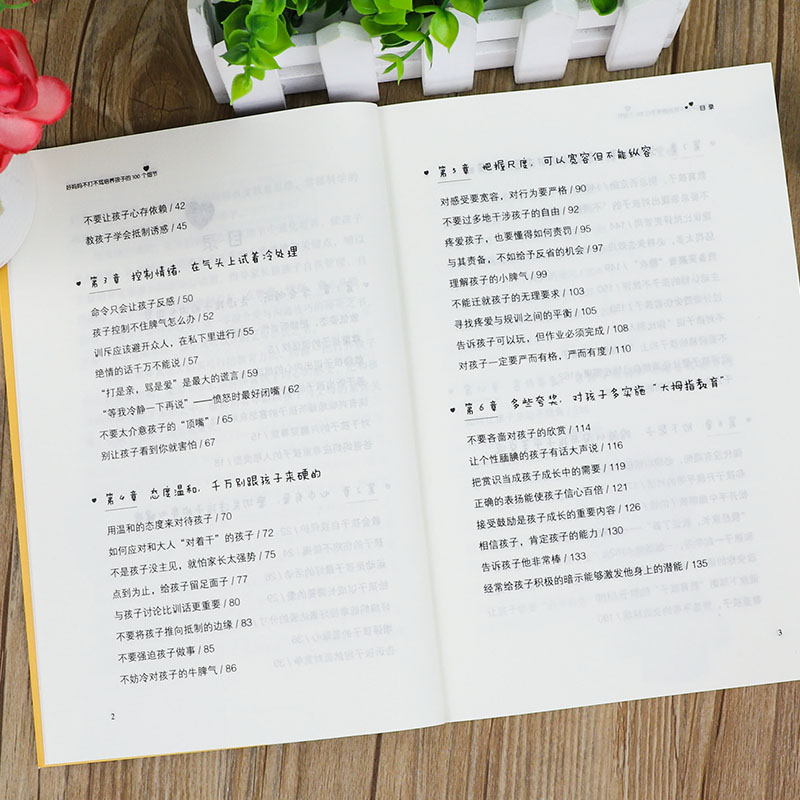 好妈妈不打不骂培养孩子的 100 个细节
不要让孩子心存依赖 / 42
教孩子学会抵制诱惑 / 45
第3章 控制情绪，在气头上试着冷处理
命令只会让孩子反感 / 50
孩子控制不住脾气怎么办 / 52
训斥应该避开众人，在私下里进行 / 55
绝情的话千万不能说 / 57
“打是亲，骂是爱”是最大的谎言 / 59
“等我冷静一下再说”——愤怒时最好闭嘴 / 62
不要太介意孩子的“顶嘴” / 65
别让孩子看到你就害怕 / 67
第4章 态度温和，千万别跟孩子来硬的
用温和的态度来对待孩子 / 70
如何应对和大人“对着干”的孩子 / 72
不是孩子没主见，就怕家长太强势 / 75
点到为止，给孩子留足面子 / 77
与孩子讨论比训话更重要 / 80
不要将孩子推向抵制的边缘 / 83
不要强迫孩子做事 / 85
不妨冷对孩子的牛脾气 / 86
2
目 录
第5章 把握尺度，可以宽容但不能纵容
对感受要宽容，对行为要严格 / 90
不要过多地干涉孩子的自由 / 92
疼爱孩子，也要懂得如何责罚 / 95
与其责备，不如给予反省的机会 / 97
理解孩子的小脾气 / 99
不能迁就孩子的无理要求 / 103
寻找疼爱与规训之间的平衡 / 105
告诉孩子可以玩，但作业必须完成 / 108
对孩子一定要严而有格，严而有度 / 110
第6章 多些夸奖，对孩子多实施“大拇指教育”
不要吝啬对孩子的欣赏 / 114
让个性腼腆的孩子有话大声说 / 116
把赏识当成孩子成长中的需要 / 119
正确的表扬能使孩子信心百倍 / 121
接受鼓励是孩子成长的重要内容 / 126
相信孩子，肯定孩子的能力 / 130
告诉孩子他非常棒 / 133
经常给孩子积极的暗示能够激发他身上的潜能 / 135
3